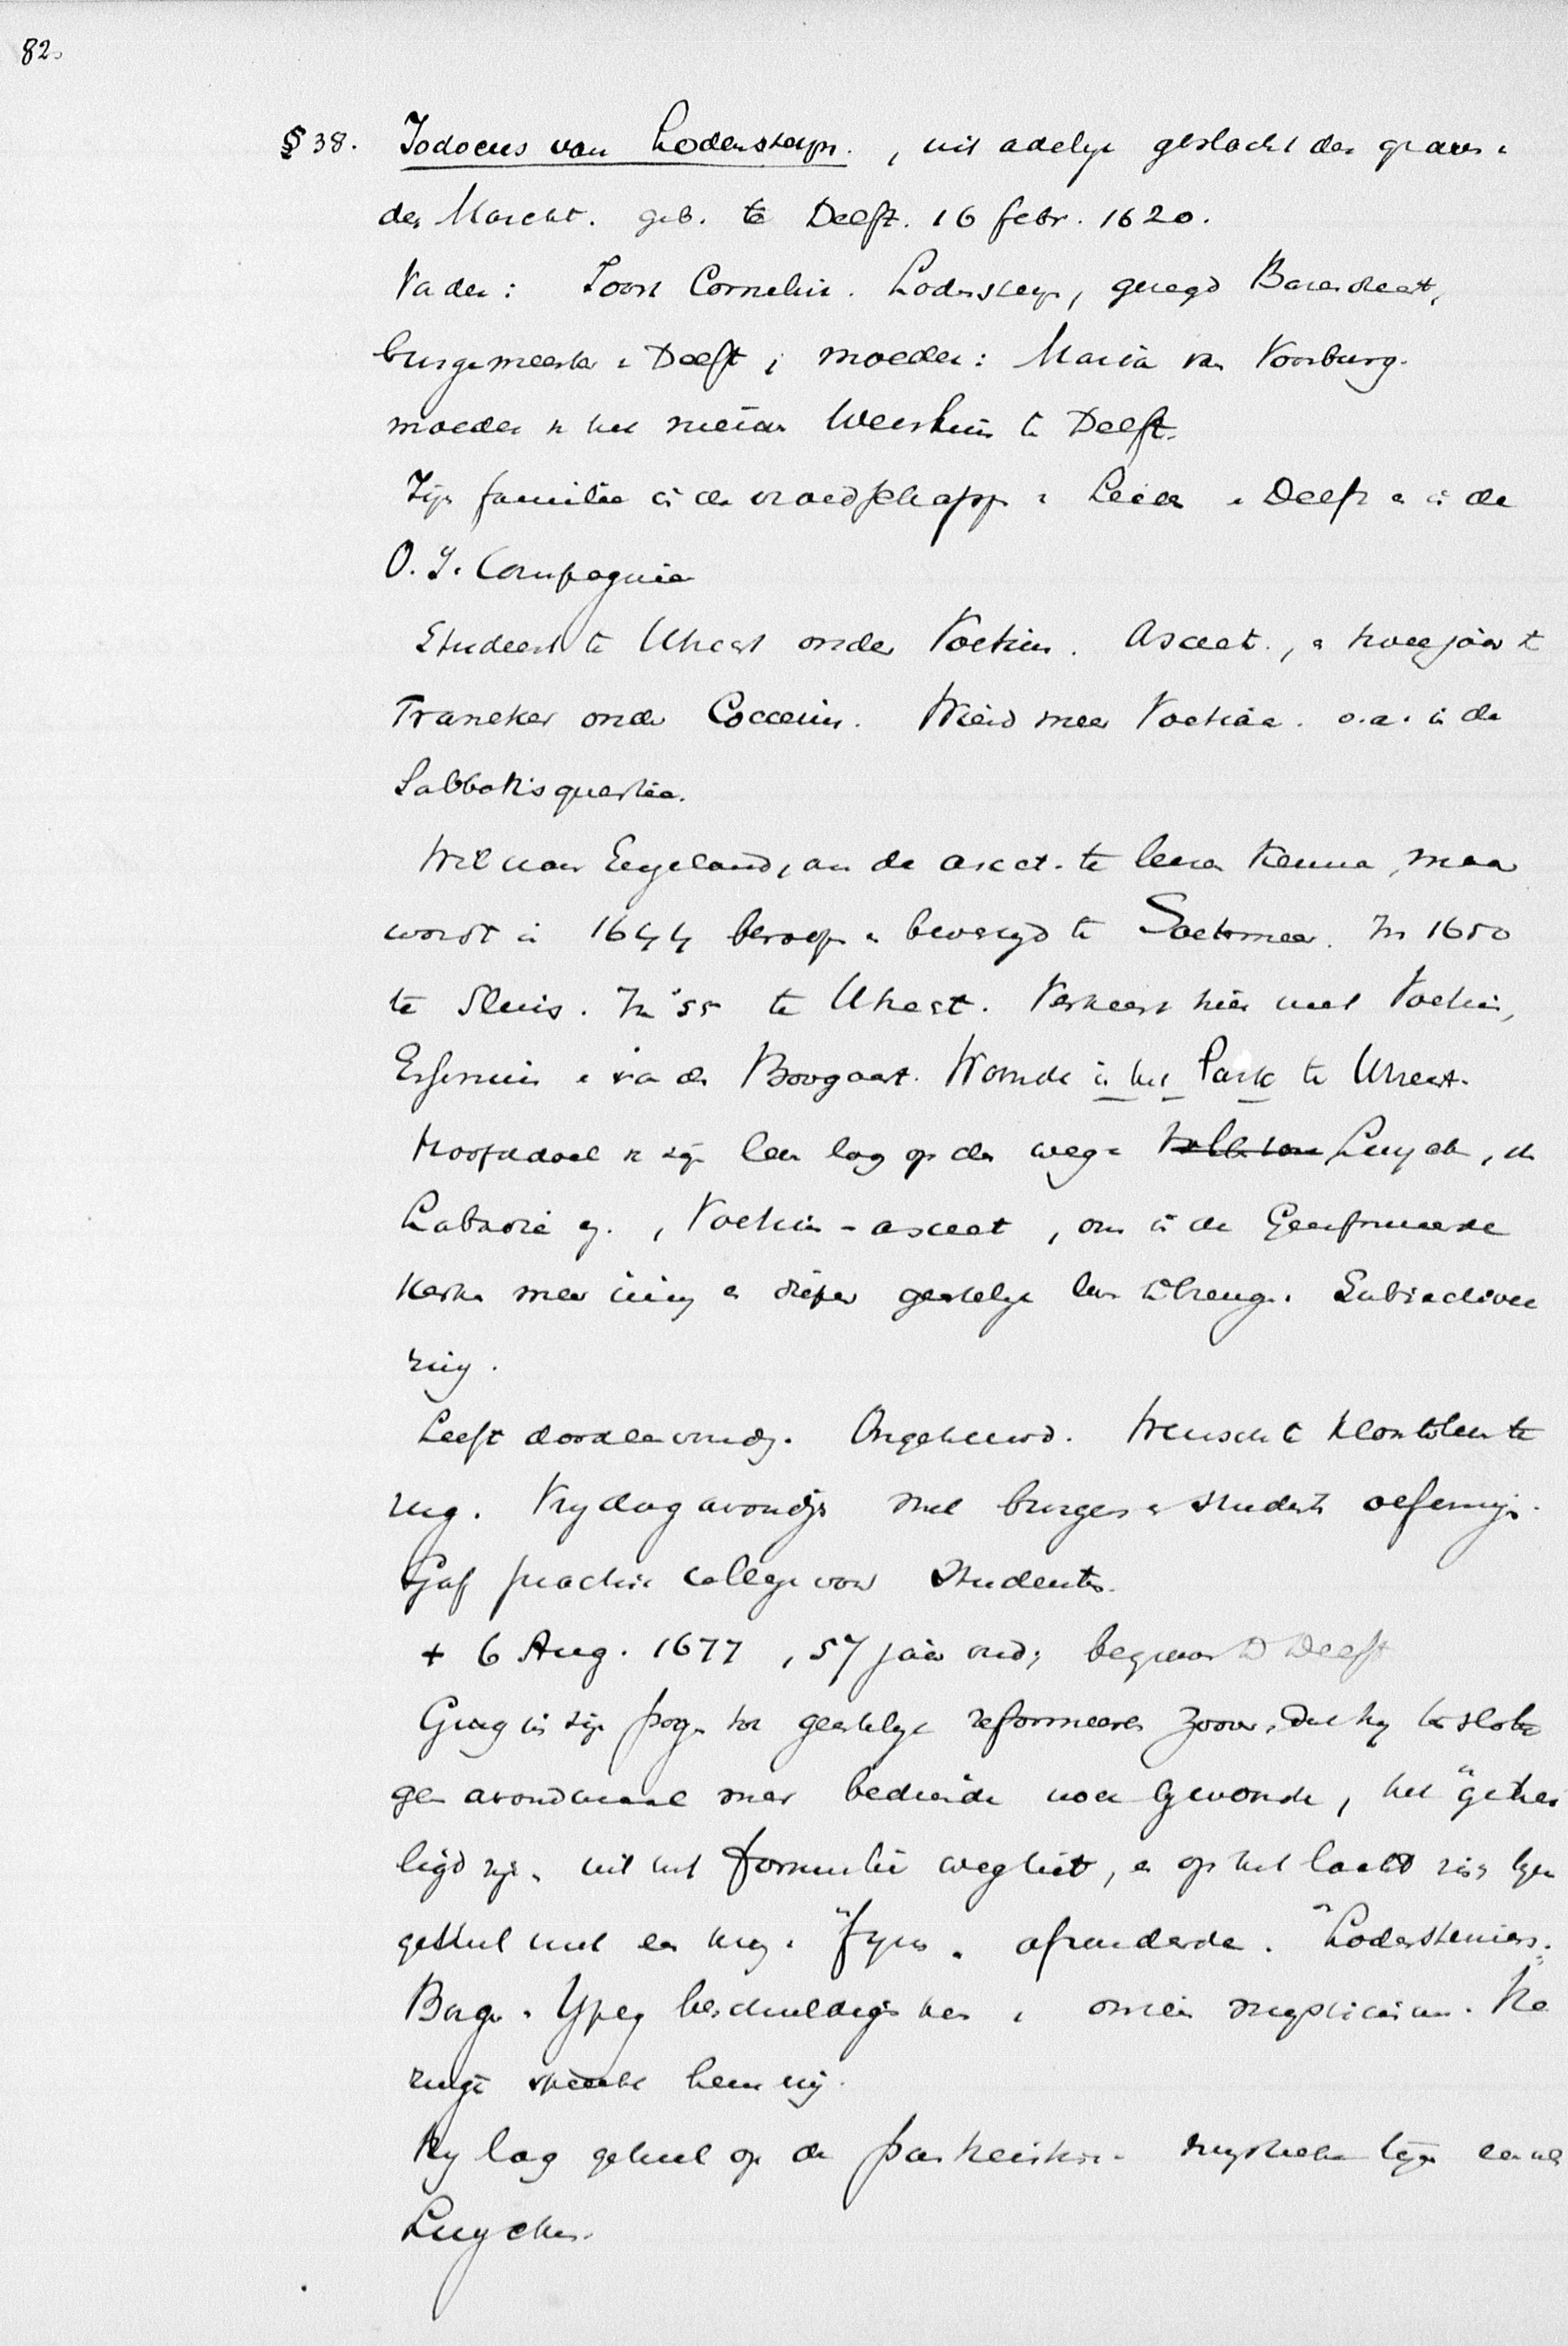 82.
§ 38. Jodocus van Lodensteyn. , uit adelyk geslacht der graven v
der Marckt. geb. te Delft. 16 febr. 1620.
Vader: Joost Cornelis. Lodesteyn, gezegd
burgemeester v Delft; moeder: Maria van Voorburg.
moeder v het nieuwe Weeshuis te Delft.
Zijn familie in de vroedschappen v Leiden en Delft en in de
O. I. Compagnie
Studeert te Utrecht onder Voetius. Asceet., en twee jaar te
Franeker onder Coccejus. Werd meer Voetiaan. o.a. in de
Sabbathsquestie.
Wil naar Engeland, om de ascet. te leeren kennen, maar
wordt in 1644 beroepen en bevestigd te Soetermeer. In 1650
te Sluis. In '55 te Utrecht. Verkeert hier met Voetius,
Essenius en v.d. Boogaart. Woonde in het Park te Utrecht.
Hoofddoel v zijn leven lag op den weg v Luyken, de
Labadie en , Voetius-asceet, om in de Gereformeerde
Kerk meer innig en dieper geestelyk leven te brengen. Subjectivee
ring.
Leeft doodeenvoudig. Ongehuwd. Wenscht kloosterleven te
rug. Vrydagavonds met burgers en studenten oefeningen.
Gaf practische college voor studenten.
+ 6 Aug. 1677, 57 jaar oud; begraven te Delft
Ging in zijn pogen tot geestelyk reformeeren zoover, dat hy ten slotte
geen avondmaal meer bediende noch bywoonde, het "gehei
ligd zijn" uit het formulier wegliet, en op het laatst zich ver
gezeld met een kring v "fynen" afzonderde. "Lodensteiniers".
Borger en Ypey beschuldigen hem v onrein mysticisme. Te
rugt spreekt hem vrij.
Hy lag geheel op de mystieke lyn evenals
Luyken.